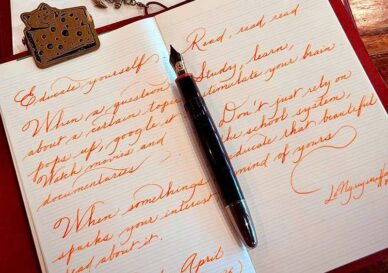 Educate yourself
When a question
about a certain topic
pops up, google it
Watch movies and
documentaries
When something
sparks your interest
read about it.
Read, read read
Study, learn,
stimulate your brain
Don't just rely on
the school system,
educate that beautiful
mind of yours
April